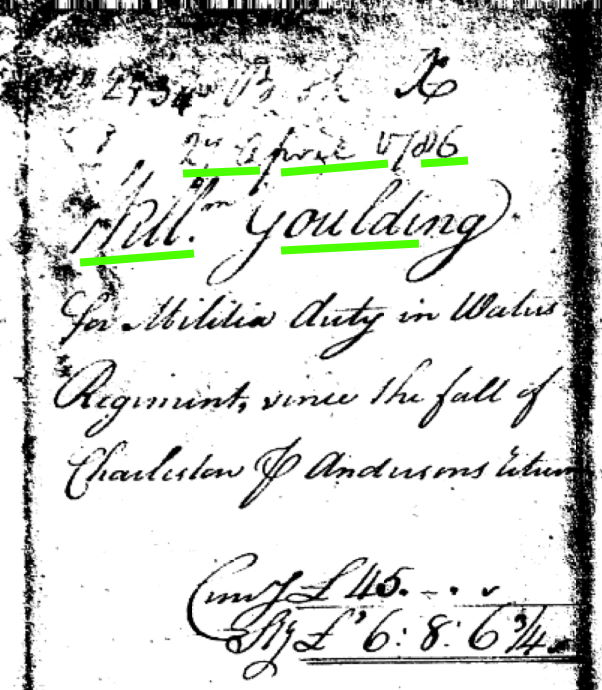 Book X
27 April 1786
Will.m Goulding
for Militia duty in Waters
Regiment, since the fall of
Charleston ⅌ Andersons return
Curr.y £ 45. - . -
Stg £ 6: 8: 6 3/4